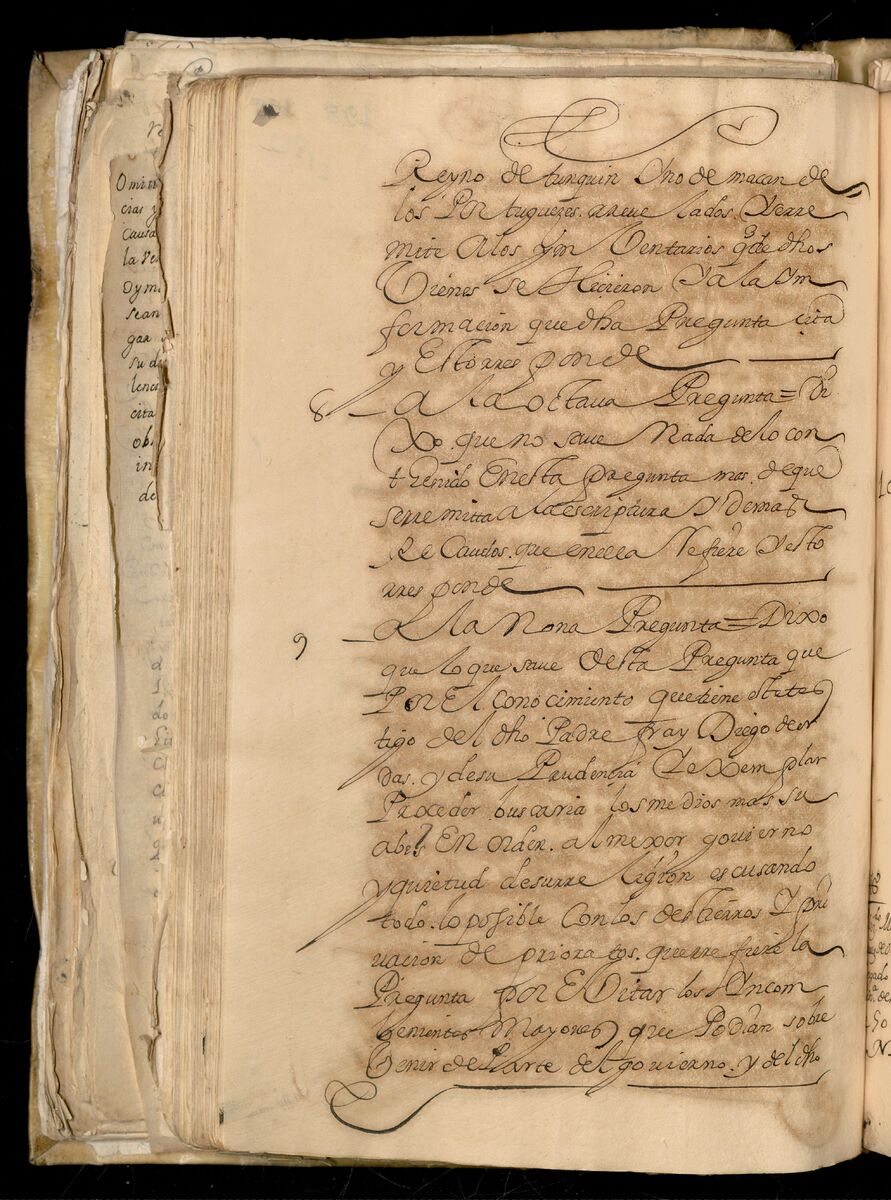 Reyno de tunquin Uno de macan de
los Portugueses. arreve lados Yserre
mite alos Ym Ventarios q̃ de dhos
Vienes se Hicieron Y a la Ym
formacion que dha Pregunta cita
y Esto rres ponde
8 a la octaua Pregunta = Di
Xo. que no saue Nada de lo con
tthenido En esta pregunta mas. de que
serremitta a la escriptura Y demas
Re Caudos. que en ella Refiere Y esto
rres ponde
9 a la Nona Pregunta = Dixo
que lo que saue desta Pregunta que
Por El conocimiento que tiene este tes
tigo del dho Padre fray Diego de or
das. y de su Prudencia Y exem plar
Proceder buscaria los medios mas su
abes En orden. al mexor gouierno
y quietud de surre ligion escusando
todo. lo posible Con los destierros Y pri
uacion de prioratos. que rre fiere la
Pregunta por EVitar los Yncom
benientes Mayores que Podian sobre
Venir de Parte del gouierno. y del dho
Omiti
cias y
causa
la Ve
sean
gar
su d
cita
ob
in
de